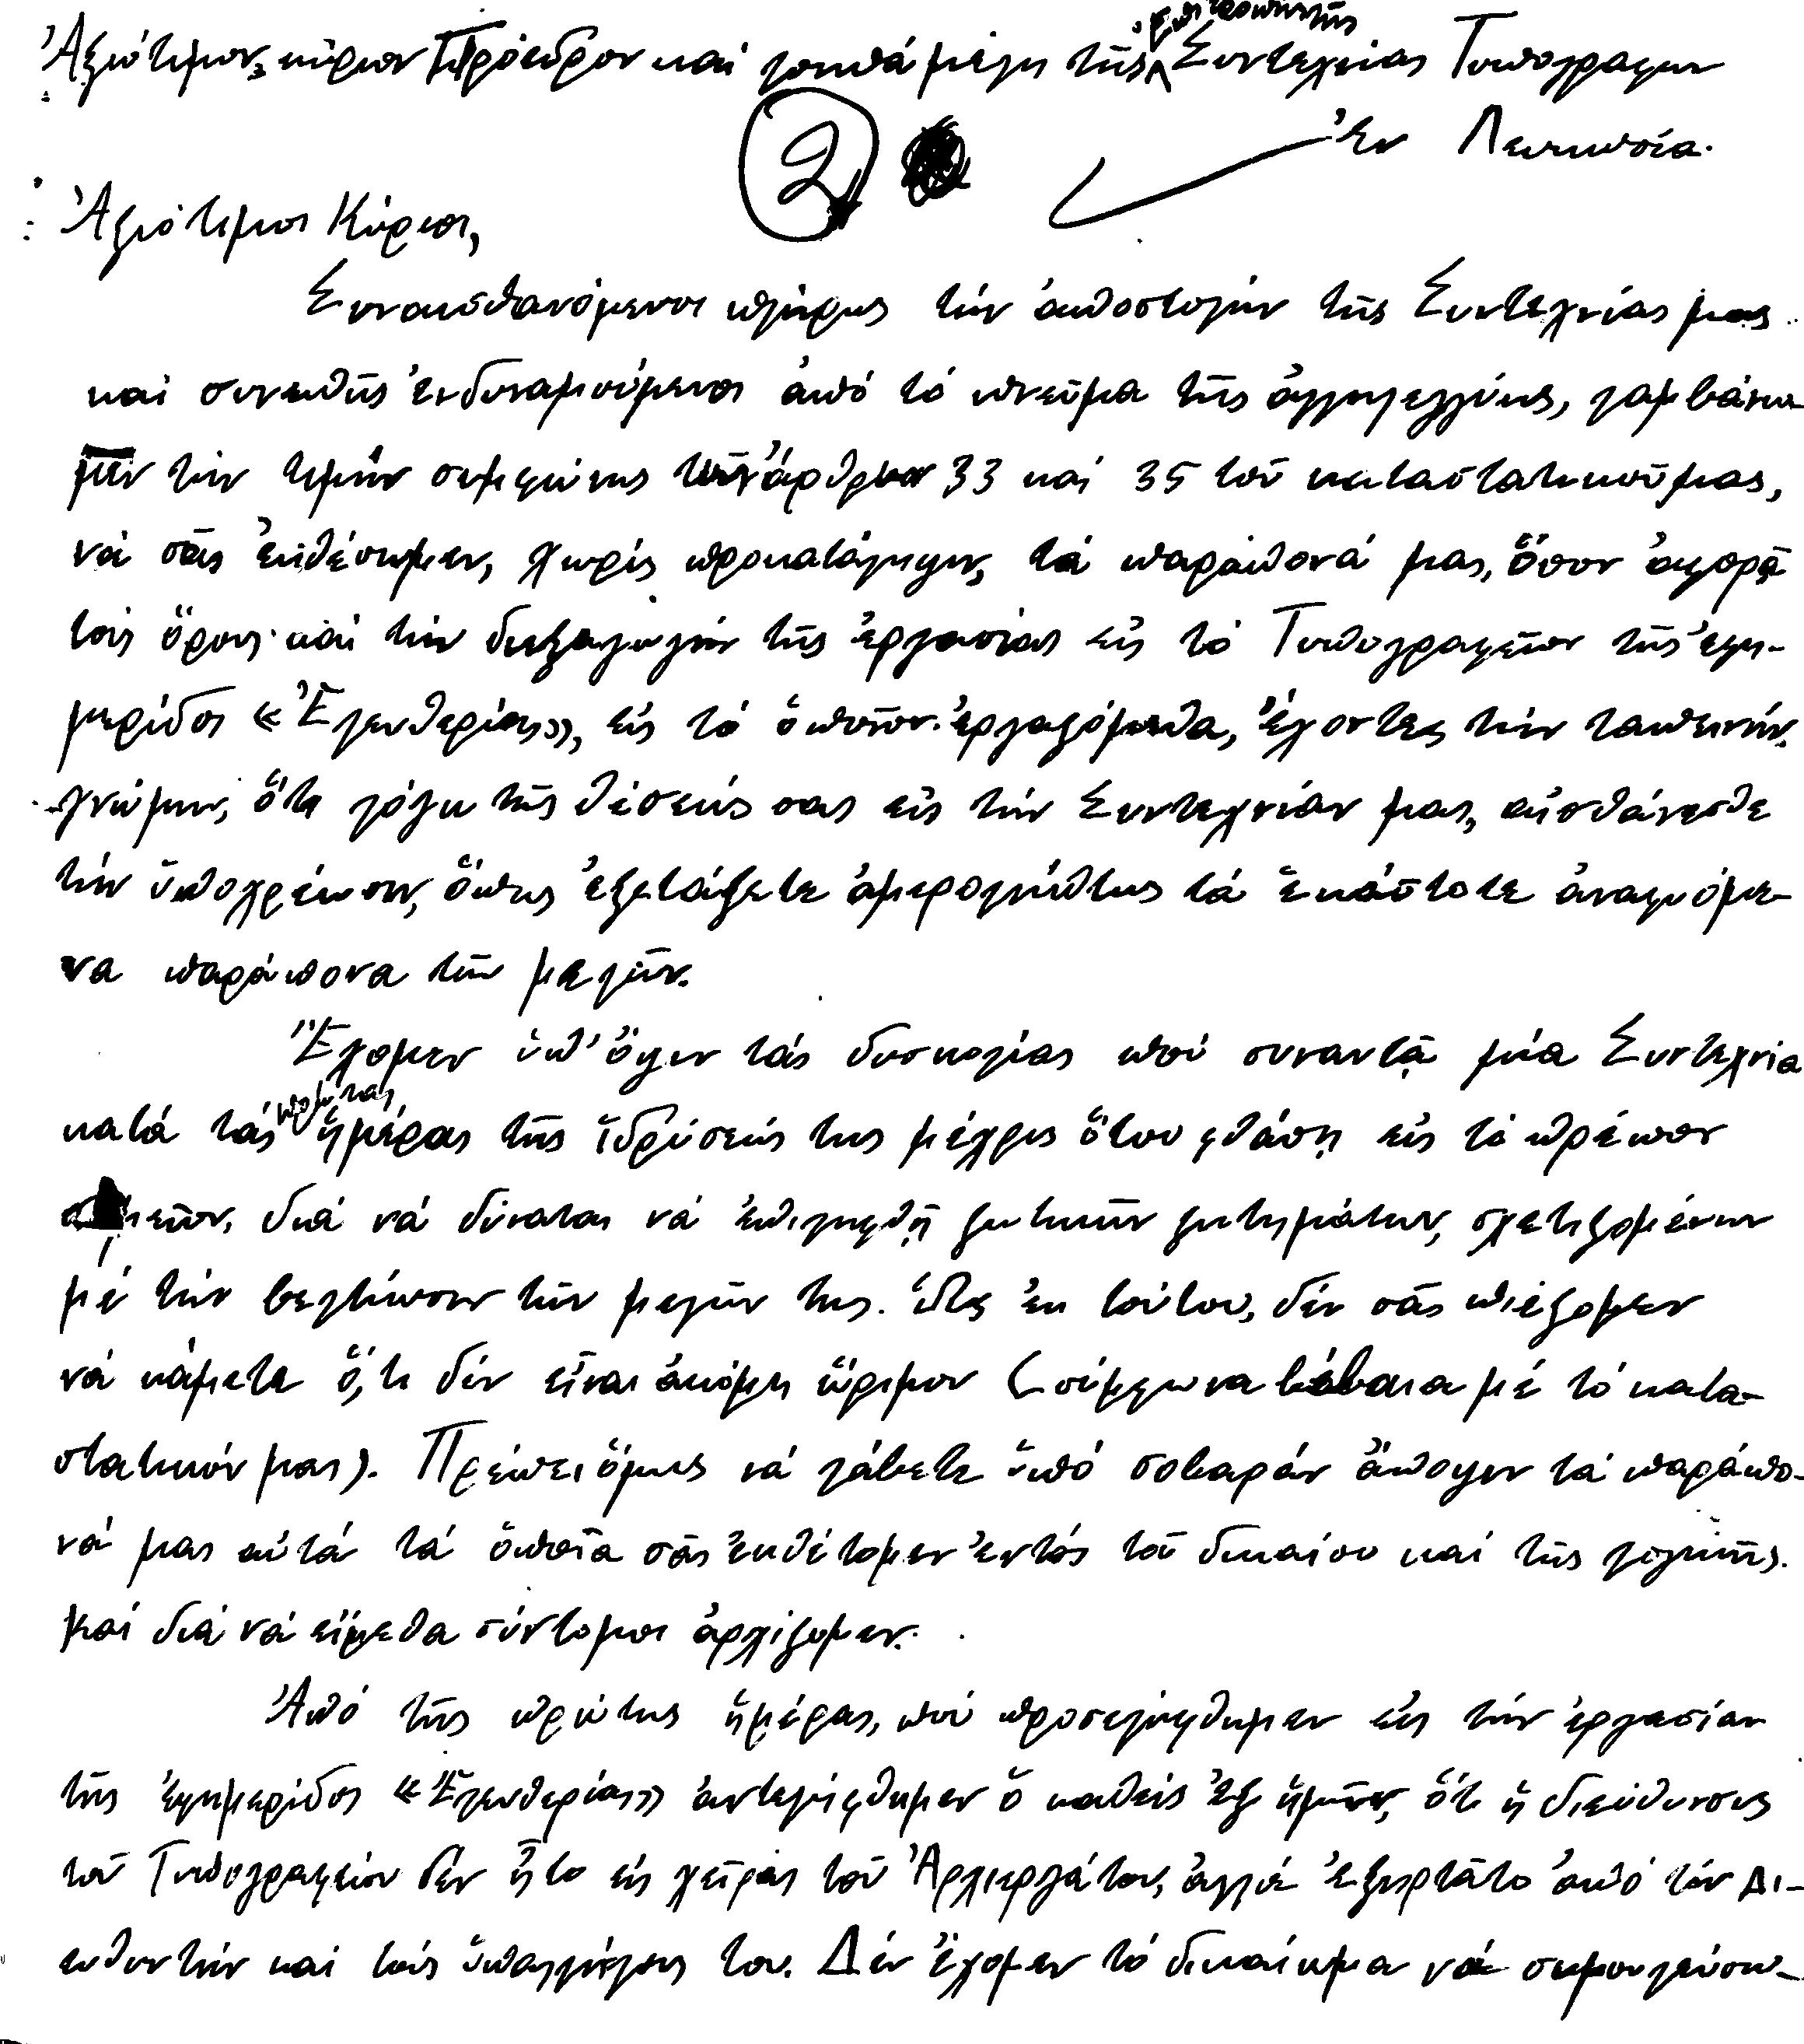 Ἀξιότιμον κύριον Πρόεδρον καί λοιπά μέλη τῆς Ἐπιτροπῆς τῆς Συντεχνίας Τυπογράφων
Ἐν Λευκωσίᾳ.
2
Ἀξιότιμοι Κύριοι,
Συναισθανόμενοι πλήρως τήν ἀποστολήν τῆς Συντεχνίας μας
καί συνεπῶς ἐνδυναμούμενοι ἀπό τό πνεῦμα τῆς ἀλληλεγγύης, λαμβάνο
μεν τήν τιμήν συμφώνως τῶν ἄρθρων 33 καί 35 τοῦ καταστατικοῦ μας,
νά σᾶς ἐκθέσωμεν, χωρίς προκατάληψιν, τά παράπονά μας, ὅσον ἀφορᾷ
τούς ὅρους καί τήν διεξαγωγήν τῆς ἐργασίας εἰς τό Τυπογραφεῖον τῆς ἐφη-
μερίδος «Ἐλευθερίας», εἰς τό ὁποῖον ἐργαζόμεθα, ἔχοντες τήν ταπεινήν
γνώμην, ὅτι λόγῳ τῆς θέσεώς σας εἰς τήν Συντεχνίαν μας, αἰσθάνεσθε
τήν ὑποχρέωσιν, ὅπως ἐξετάζετε ἀμερολήπτως τά ἑκάστοτε ἀναφυόμε-
να παράπονα τῶν μελῶν.
Ἔχομεν ὑπ' ὄψιν τάς δυσκολίας πού συναντᾷ μία Συντεχνία
κατά τάς πρώτας ἡμέρας τῆς ἱδρύσεώς της μέχρις ὅτου φθάσῃ εἰς τό πρέπον
σημεῖον, διά νά δύναται νά ἐπιληφθῇ ζωτικῶν ζητημάτων, σχετιζομένων
μέ τήν βελτίωσιν τῶν μελῶν της. Ὡς ἐκ τούτου, δέν σᾶς πιέζομεν
νά κάμετε ὅ,τι δέν εἶναι ἀκόμη ὥριμον (σύμφωνα βέβαια μέ τό κατα-
στατικόν μας). Πρέπει ὅμως νά λάβετε ὑπό σοβαράν ἄποψιν τά παράπο-
νά μας αὐτά τά ὁποῖα σᾶς ἐκθέτομεν ἐντός τοῦ δικαίου καί τῆς λογικῆς.
καί διά νά εἴμεθα σύντομοι ἀρχίζομεν.
Ἀπό τῆς πρώτης ἡμέρας, πού προσελήφθημεν εἰς τήν ἐργασίαν
τῆς ἐφημερίδος «Ἐλευθερίας» ἀντελήφθημεν ὁ καθείς ἐξ ἡμῶν, ὅτι ἡ διεύθυνσις
τοῦ Τυπογραφείου δέν ἦτο εἰς χεῖρας τοῦ Ἀρχιεργάτου, ἀλλά ἐξηρτᾶτο ἀπό τόν Δι-
ευθυντήν καί τούς ὑπαλλήλους του. Δέν ἔχομεν τό δικαίωμα νά συμβουλεύσω-